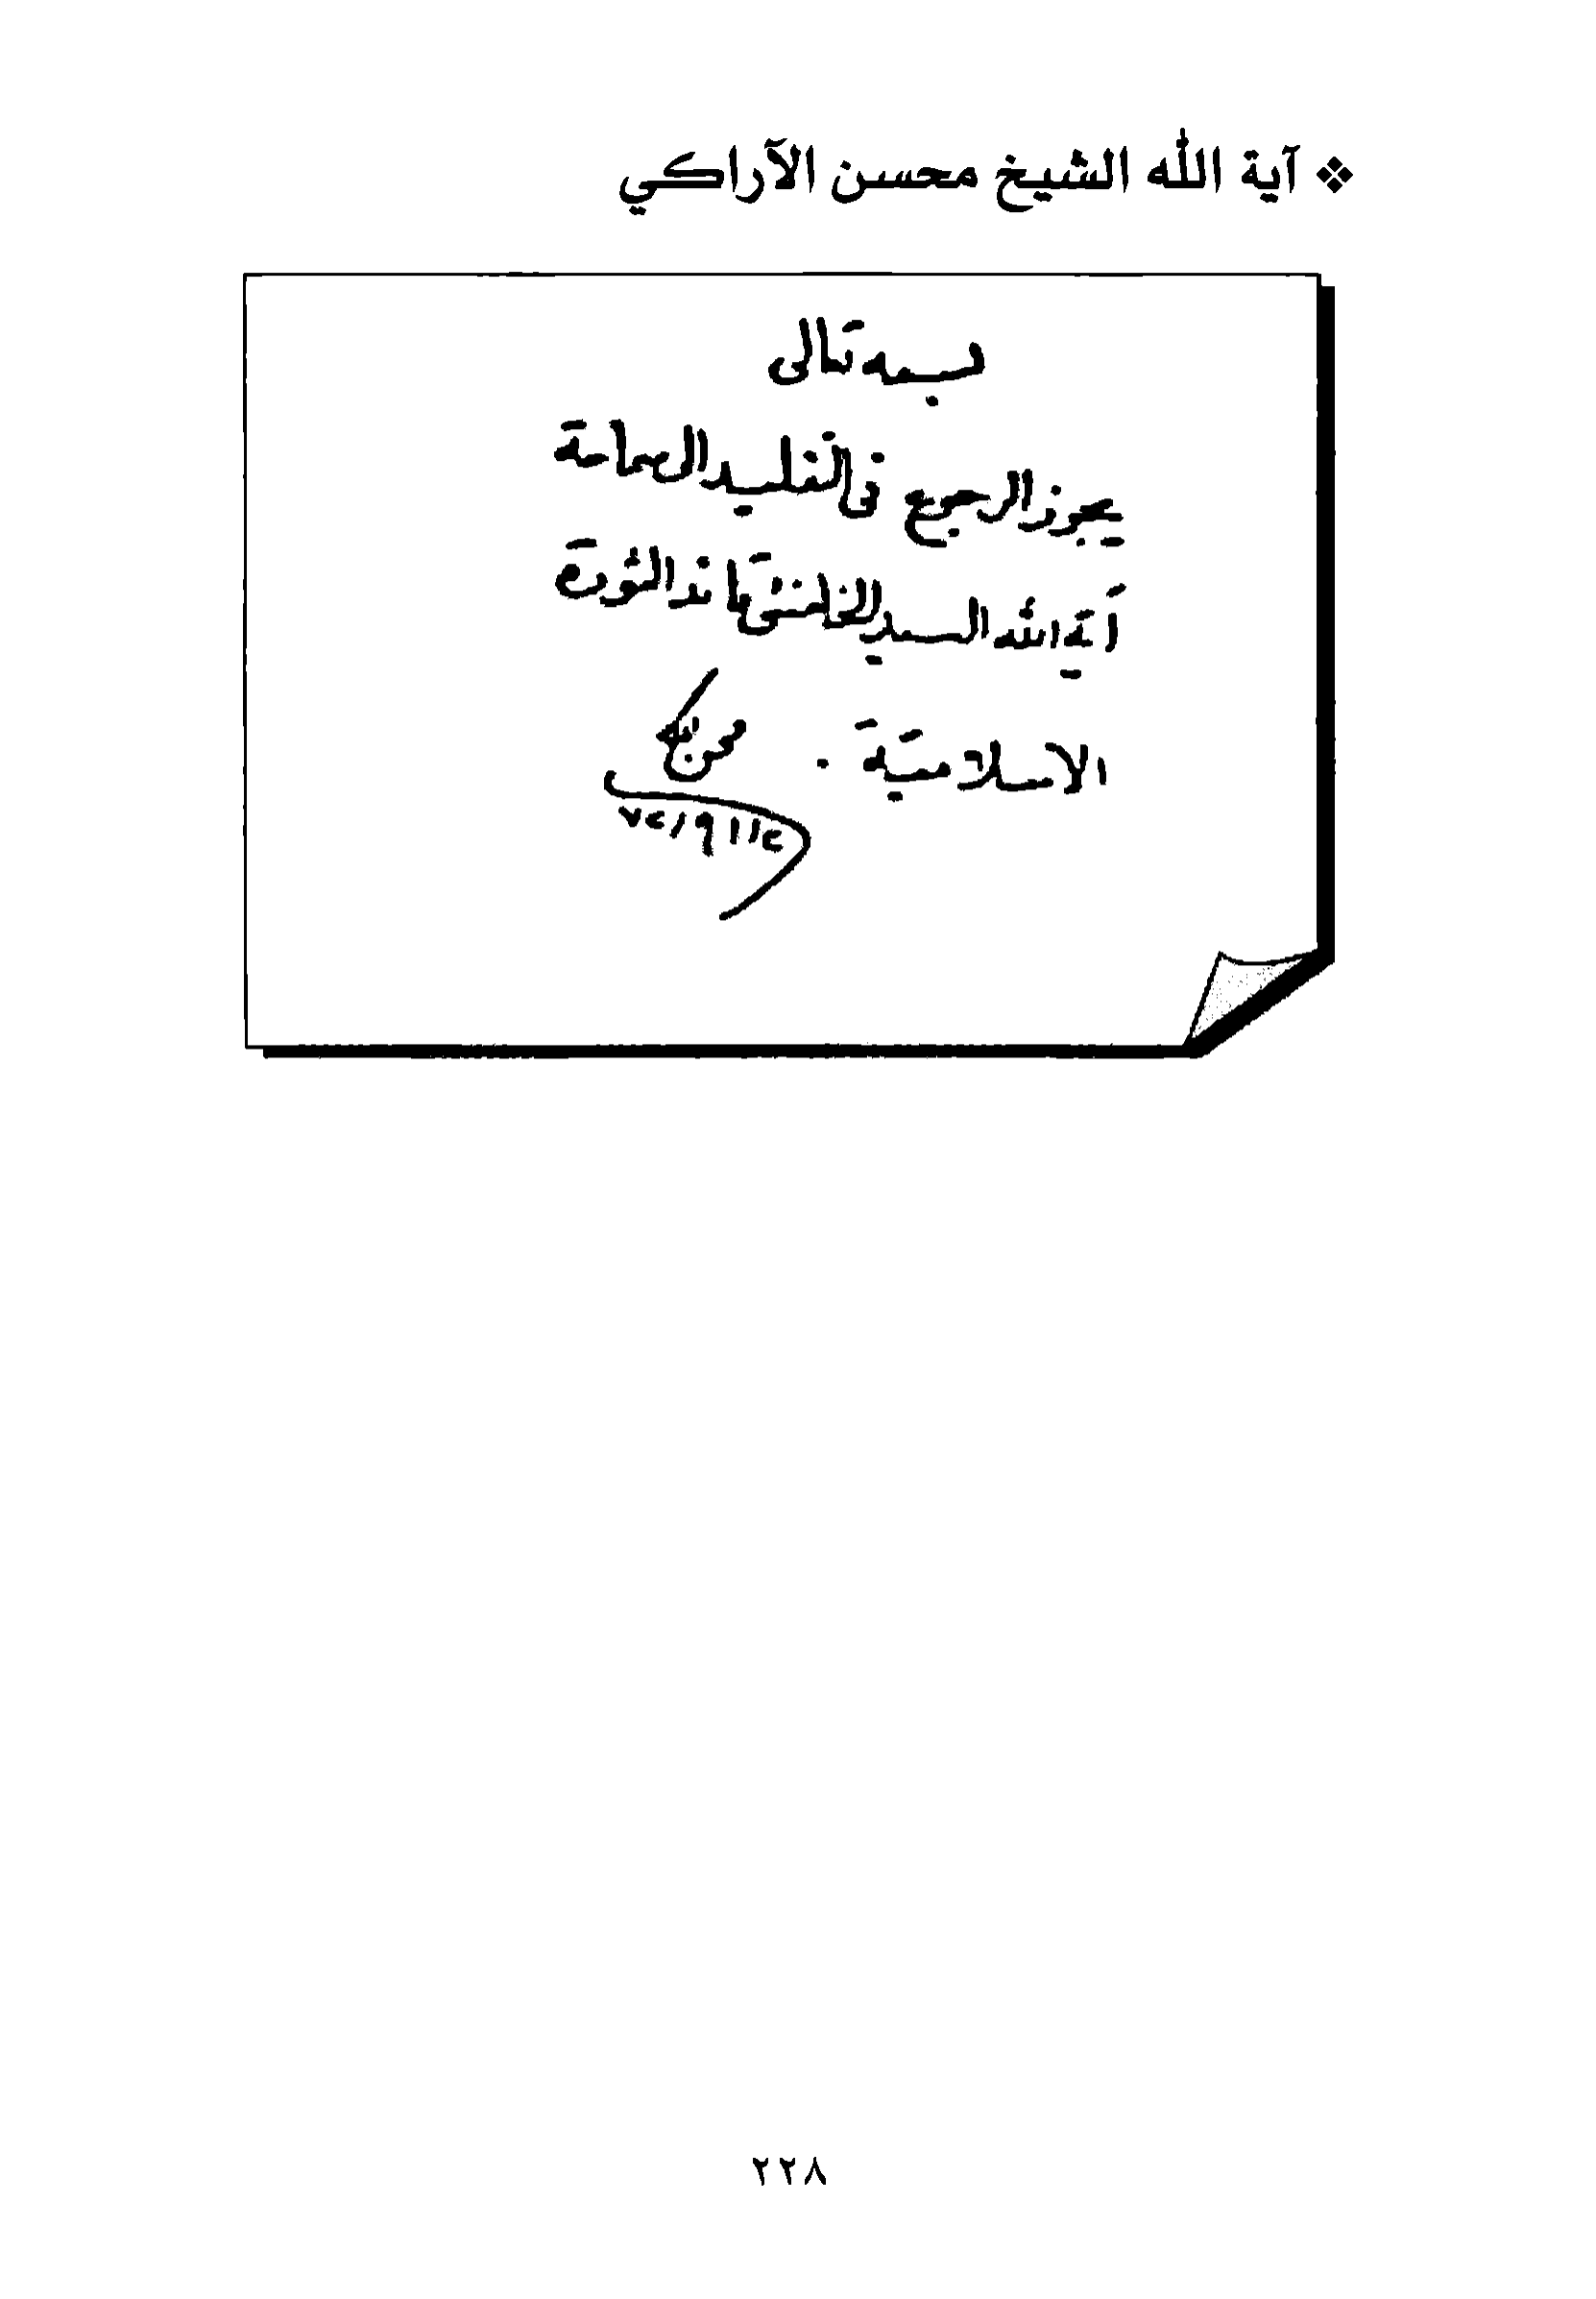 ❖ آية الله الشيخ محسن الآراكي
بسمه تعالى
يجوز الرجوع في التقليد الى سماحة
آية الله السيد الخامنئي قائد الثورة
الاسلامية .
محسن
٢٢٨